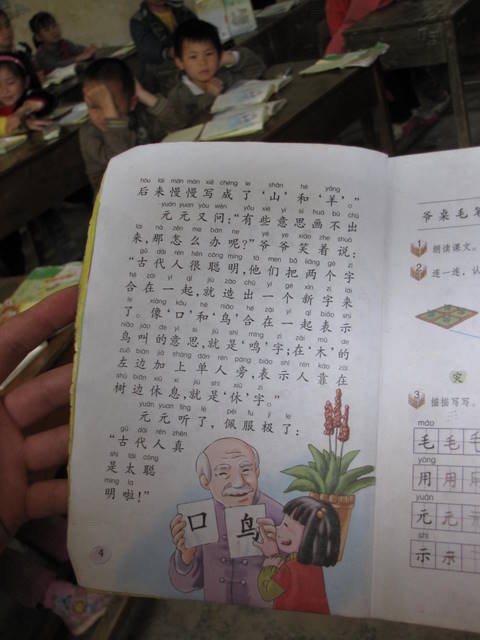 hòu lái màn màn xiě chéng le shān hé yáng
后来慢慢写成了‘山’和‘羊’。”
yuán yuan yòu wèn yǒu xiē yì si huà bù chū
元元又问:“有些意思画不出
lái nà zěn me bàn ne yé ye xiào zhe shuō
来,那怎么办呢?”爷爷笑着说:
gǔ dài rén hěn cōng míng tā men bǎ liǎng gè zì
“古代人很聪明,他们把两个字
hé zài yì qǐ jiù zào chū yí gè xīn zì lái
合在一起,就造出一个新字来
le xiàng kǒu hé niǎo hé zài yì qǐ biǎo shì
了。像‘口’和‘鸟’合在一起表示
niǎo jiào de yì si jiù shì míng zì zài mù de
鸟叫的意思,就是‘鸣’字;在‘木’的
zuǒ bian jiā shàng dān rén páng biǎo shì rén kào zài
左边加上单人旁,表示人靠在
shù biān xiū xi jiù shì xiū zì
树边休息,就是‘休’字。”
yuán yuan tīng le pèi fú jí le
元元听了,佩服极了:
gǔ dài rén zhēn
“古代人真
shì tài cōng
是太聪
míng la
明啦!”
口 鸟
4
爷桌毛笔
1 朗读课文。
2 连一连,认
灾
3 描描写写。
máo
毛毛毛
yòng
用用用
yuán
元元
shì
示示